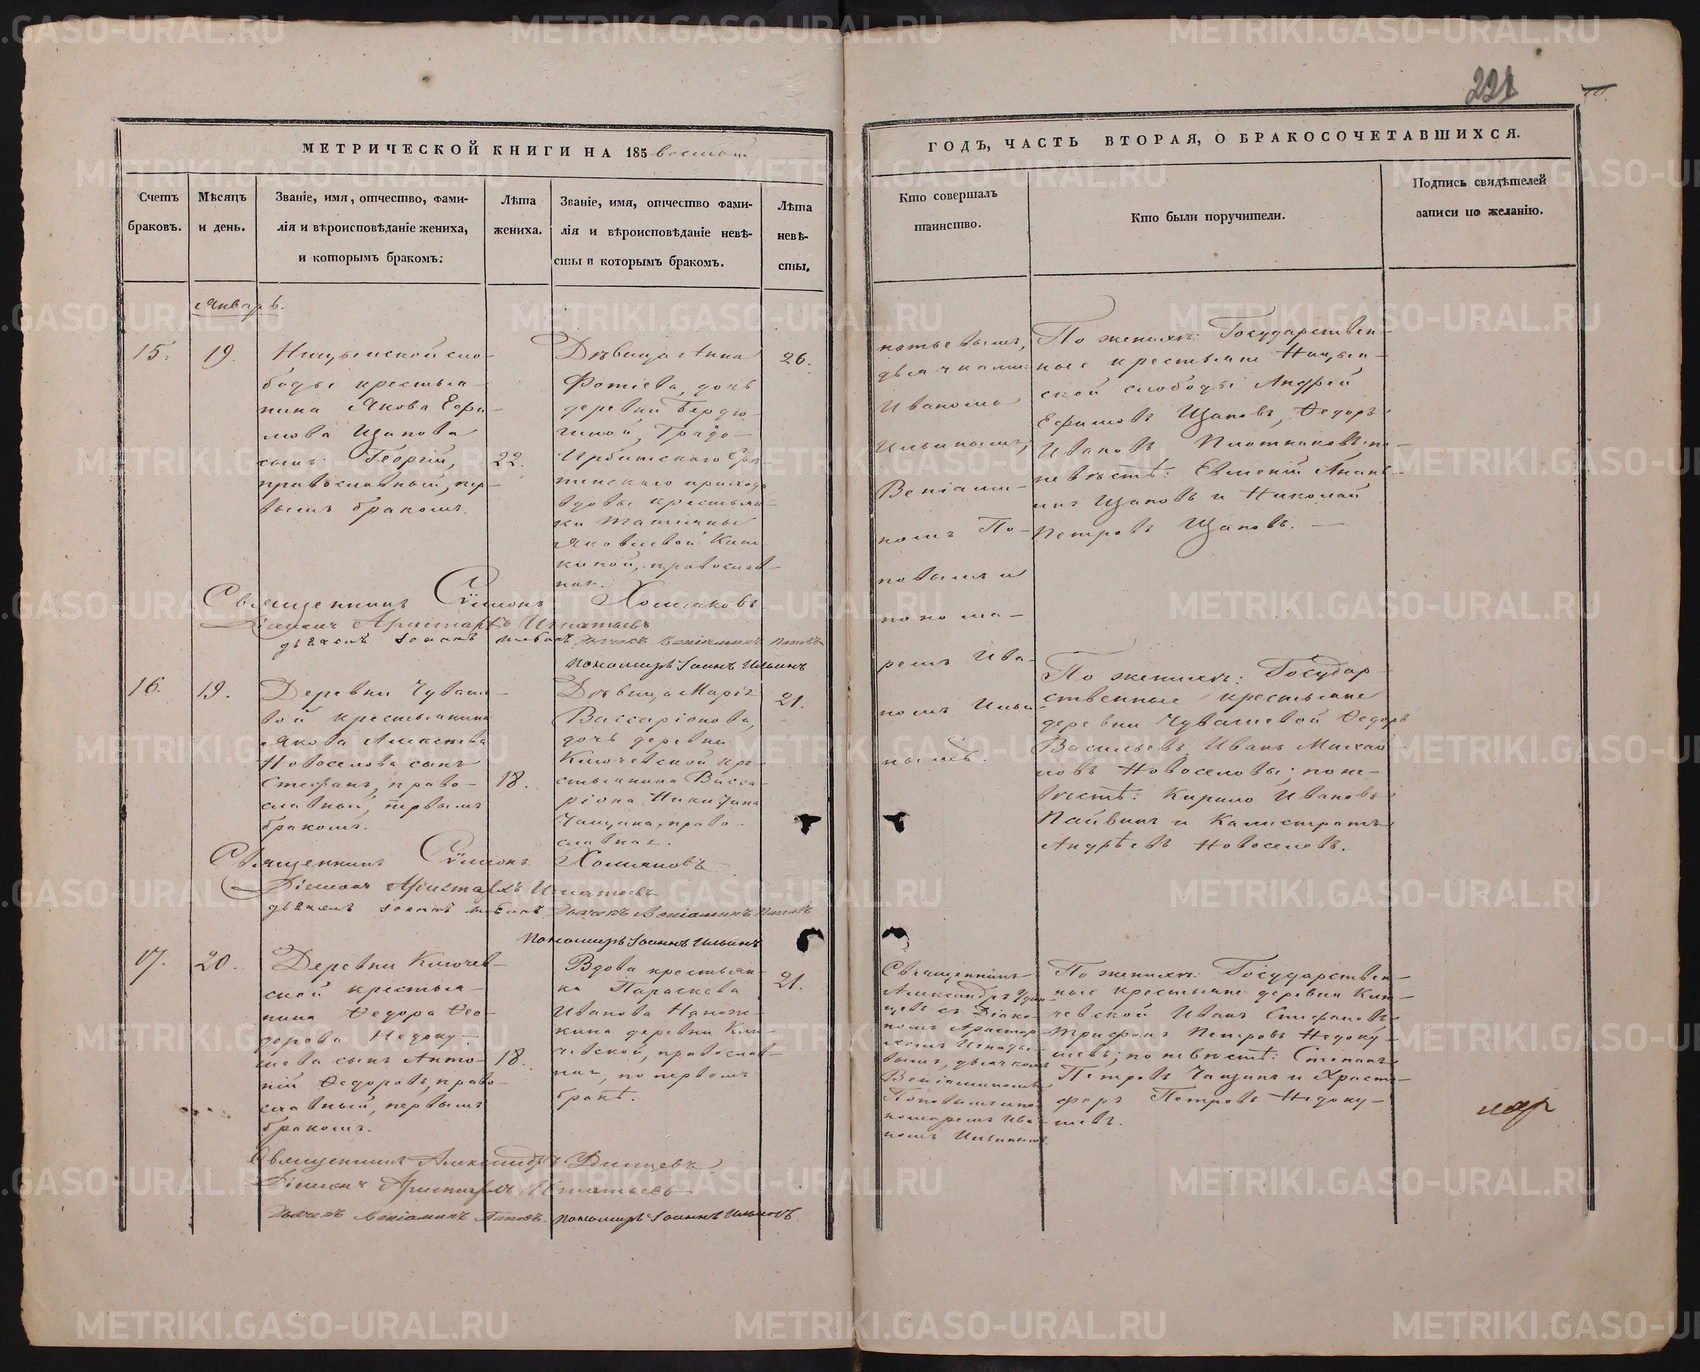 221
МЕТРИЧЕСКОЙ КНИГИ НА 185 восьмый
ГОДЪ, ЧАСТЬ ВТОРАЯ, О БРАКОСОЧЕТАВШИХСЯ.
Счетъ браковъ.
Мѣсяцъ и день.
Званіе, имя, отчество, фами-
лія и вѣроисповѣданіе жениха,
и которымъ бракомъ:
Лѣта жениха.
Званіе, имя, отчество фами-
лія и вѣроисповѣданіе невѣ-
сты и которымъ бракомъ.
Лѣта невѣ-
сты.
Кто совершалъ
таинство.
Кто были поручители.
Подпись свидѣтелей
записи по желанію.
Январь.
15.
19.
Ницынской сло-
боды крестья-
нина Якова Ефи-
мова Щапова
сынъ Георгій,
православный, пер-
вымъ бракомъ.
22.
Дѣвица Анна
Фотіева, дочь
деревни Бердю-
гиной,
Ирбитскаго
прихода
вдовы крестьян-
ки Татьяны
Яковлевой
православ-
ная.
26.
дьячками:
Иваномъ
Ильинымъ,
Веніами-
номъ По-
повымъ и
понома-
ремъ Ива-
номъ Ильи-
нымъ.
По женихѣ: Государствен-
ные крестьяне Ницын-
ской слободы Андрей
Ефимовъ Щаповъ, Федоръ
Ивановъ Плотниковъ по
невѣстѣ: Евгеній
Щаповъ и Николай
Петровъ Щаповъ.
Священникъ Сѵмеонъ Хомяковъ
Діаконъ Аристархъ Игнатьевъ
дьячекъ Веніаминъ Поповъ
Пономарь Іоаннъ Ильинъ
16.
19.
Деревни Чуваше-
вой крестьянина
Якова Алексѣева
Новоселова сынъ
Стефанъ, право-
славный, первымъ
бракомъ.
18.
Дѣвица Марія
Виссаріонова,
дочь деревни
Ключевской кре-
стьянина Висса-
ріона Никитина
Чащина, право-
славная.
21.
По женихѣ: Государ-
ственные крестьяне
деревни Чувашевой Федоръ
Васильевъ, Иванъ Михай-
ловъ Новоселовы; по не-
вѣстѣ: Кирило Ивановъ
Пайвинъ и Калистратъ
Андрѣевъ Новоселовъ.
Священникъ Сѵмеонъ Хомяковъ
Діаконъ Аристархъ Игнатьевъ
Дьячекъ Веніаминъ Поповъ
Пономарь Іоаннъ Ильинъ
17.
20.
Деревни Ключев-
ской крестья-
нина Федора Фео-
дорова Недоку-
шева сынъ Анто-
ній Федоровъ, право-
славный, первымъ
бракомъ.
18.
Вдова крестьян-
ка Параскева
Иванова
деревни Клю-
чевской, православ-
ная, по первомъ
бракѣ.
21.
Священникъ
Александръ Удин-
цевъ съ Діако-
номъ Аристар-
хомъ Игнать-
вымъ, дьячкомъ
Веніаминомъ
Поповымъ и по-
номаремъ Ива-
номъ Ильинымъ.
По женихѣ: Государствен-
ные крестьяне деревни Клю-
чевской Иванъ Стефановъ
Трифонъ Петровъ Недоку-
шевъ; по невѣстѣ: Степанъ
Петровъ Чащинъ и Христо-
форъ Петровъ Недоку-
шевъ.
Священникъ Александръ Удинцевъ.
Діаконъ Аристархъ Игнатьевъ
Дьячекъ Веніаминъ Поповъ. Пономарь Іоаннъ Ильинъ.
METRIKI.GASO-URAL.RU